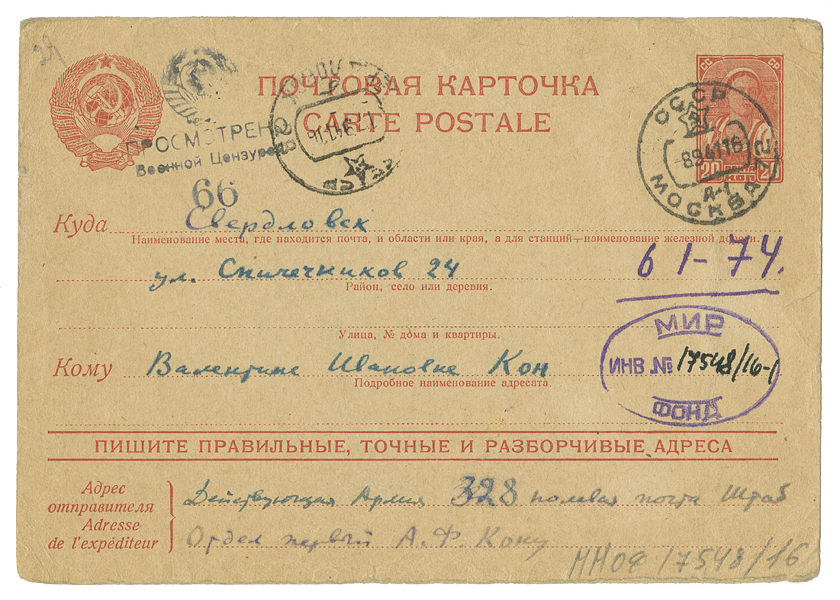 ПОЧТОВАЯ КАРТОЧКА
CARTE POSTALE
ПРОСМОТРЕНО
Военной Цензурой
66
СССР
894116
А-1
МОСКВА
20 КОП 20
Куда Свердловск
Наименование места, где находится почта, и области или края, а для станций—наименование железной дороги.
ул. Спичечников 24
61-74.
Район, село или деревня.
Улица, № дома и квартиры.
МИР
ИНВ.№ 17548/16-1
ФОНД
Кому Валентине Ивановне Кон
Подробное наименование адресата.
ПИШИТЕ ПРАВИЛЬНЫЕ, ТОЧНЫЕ И РАЗБОРЧИВЫЕ АДРЕСА
Адрес
отправителя
Adresse
de l'expéditeur
Действующая Армия 328 полевая почта Штаб
Отдел первый А.Ф. Кону
ННОФ 17548/16